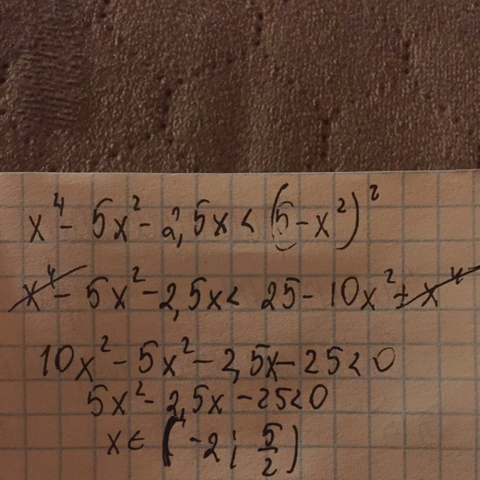 x⁴ - 5x² - 2,5x < (5 - x²)²
x⁴ - 5x² - 2,5x < 25 - 10x² + x⁴
10x² - 5x² - 2,5x - 25 < 0
5x² - 2,5x - 25 < 0
x ∈ (-2; 5/2)